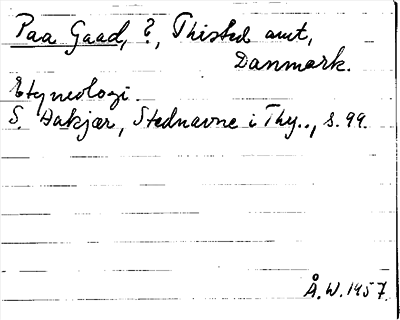 Paa Gaad, ?, Thisted amt,
Danmark.
Etymologi.
S. Dakjær, Stednavne i Thy.., s. 99.
Å.W. 1957.